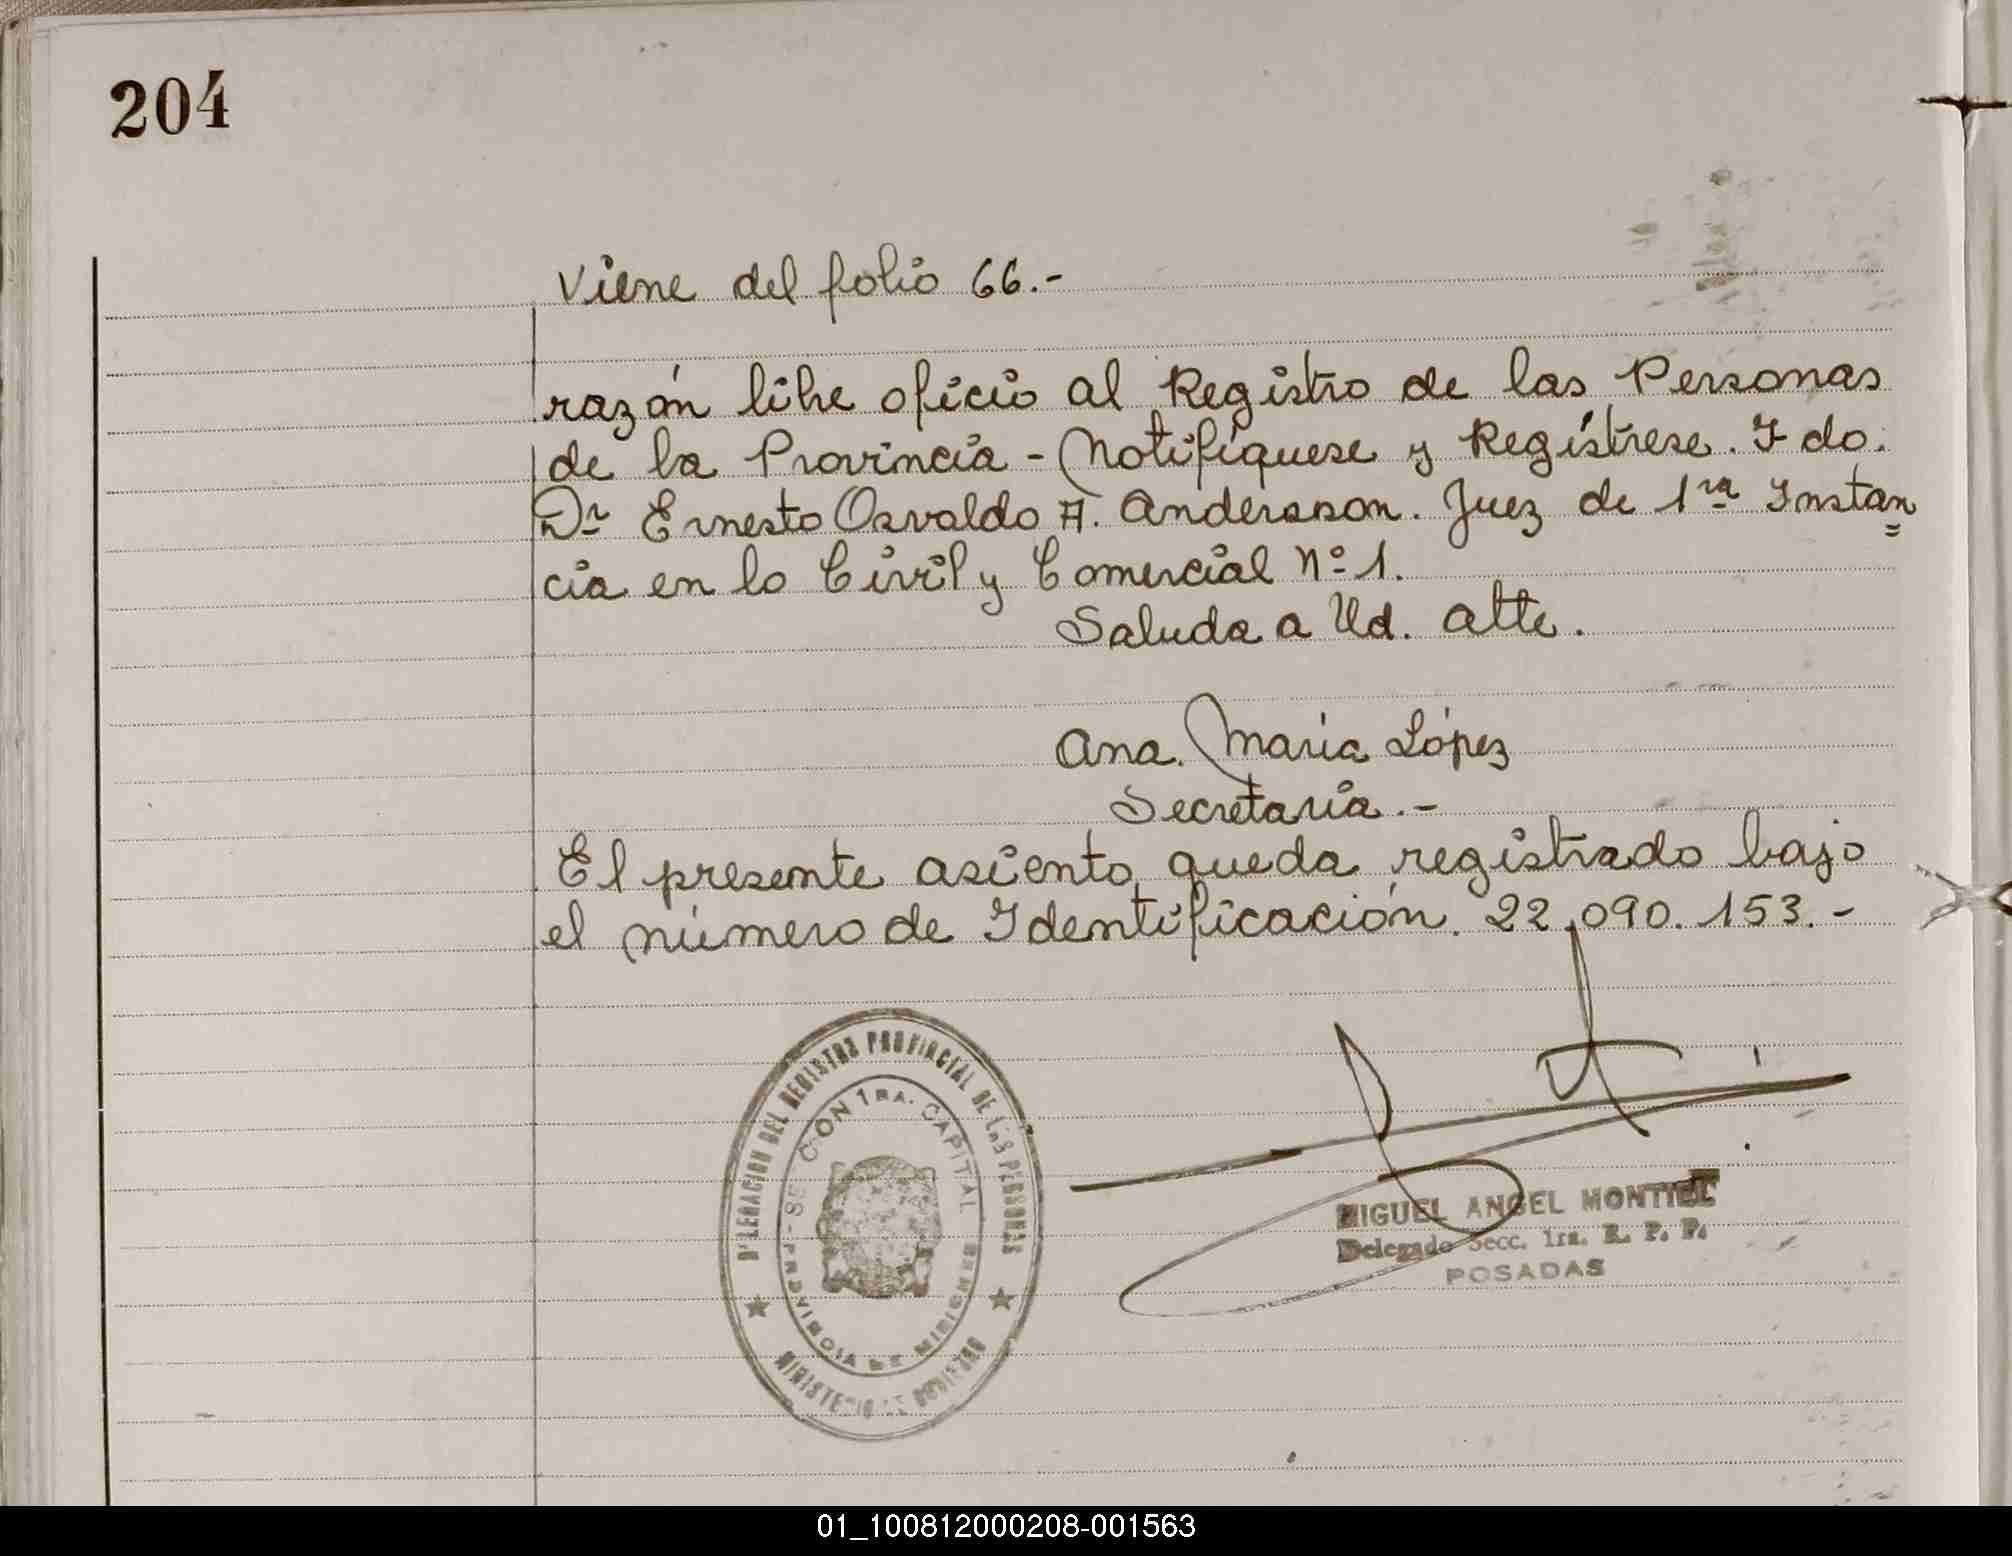 204
Viene del folio 66.-
razón libre oficio al Registro de las Personas
de la Provincia - Notifíquese y Regístrese. Fdo.
Dr Ernesto Osvaldo A. Andersson. Juez de 1ra Instan=
cia en lo Civil y Comercial Nº 1.
Saluda a Ud. atte.
Ana María López
Secretaria.-
El presente asiento queda registrado bajo
el número de Identificación. 22.090.153.-
DELEGACION DEL REGISTRO PROVINCIAL DE LAS PERSONAS
SECCION 1RA. CAPITAL
PROVINCIA DE MISIONES
MINISTERIO DE GOBIERNO
MIGUEL ANGEL MONTIEL
Delegado Secc. 1ra. R. P. P.
POSADAS
01_100812000208-001563